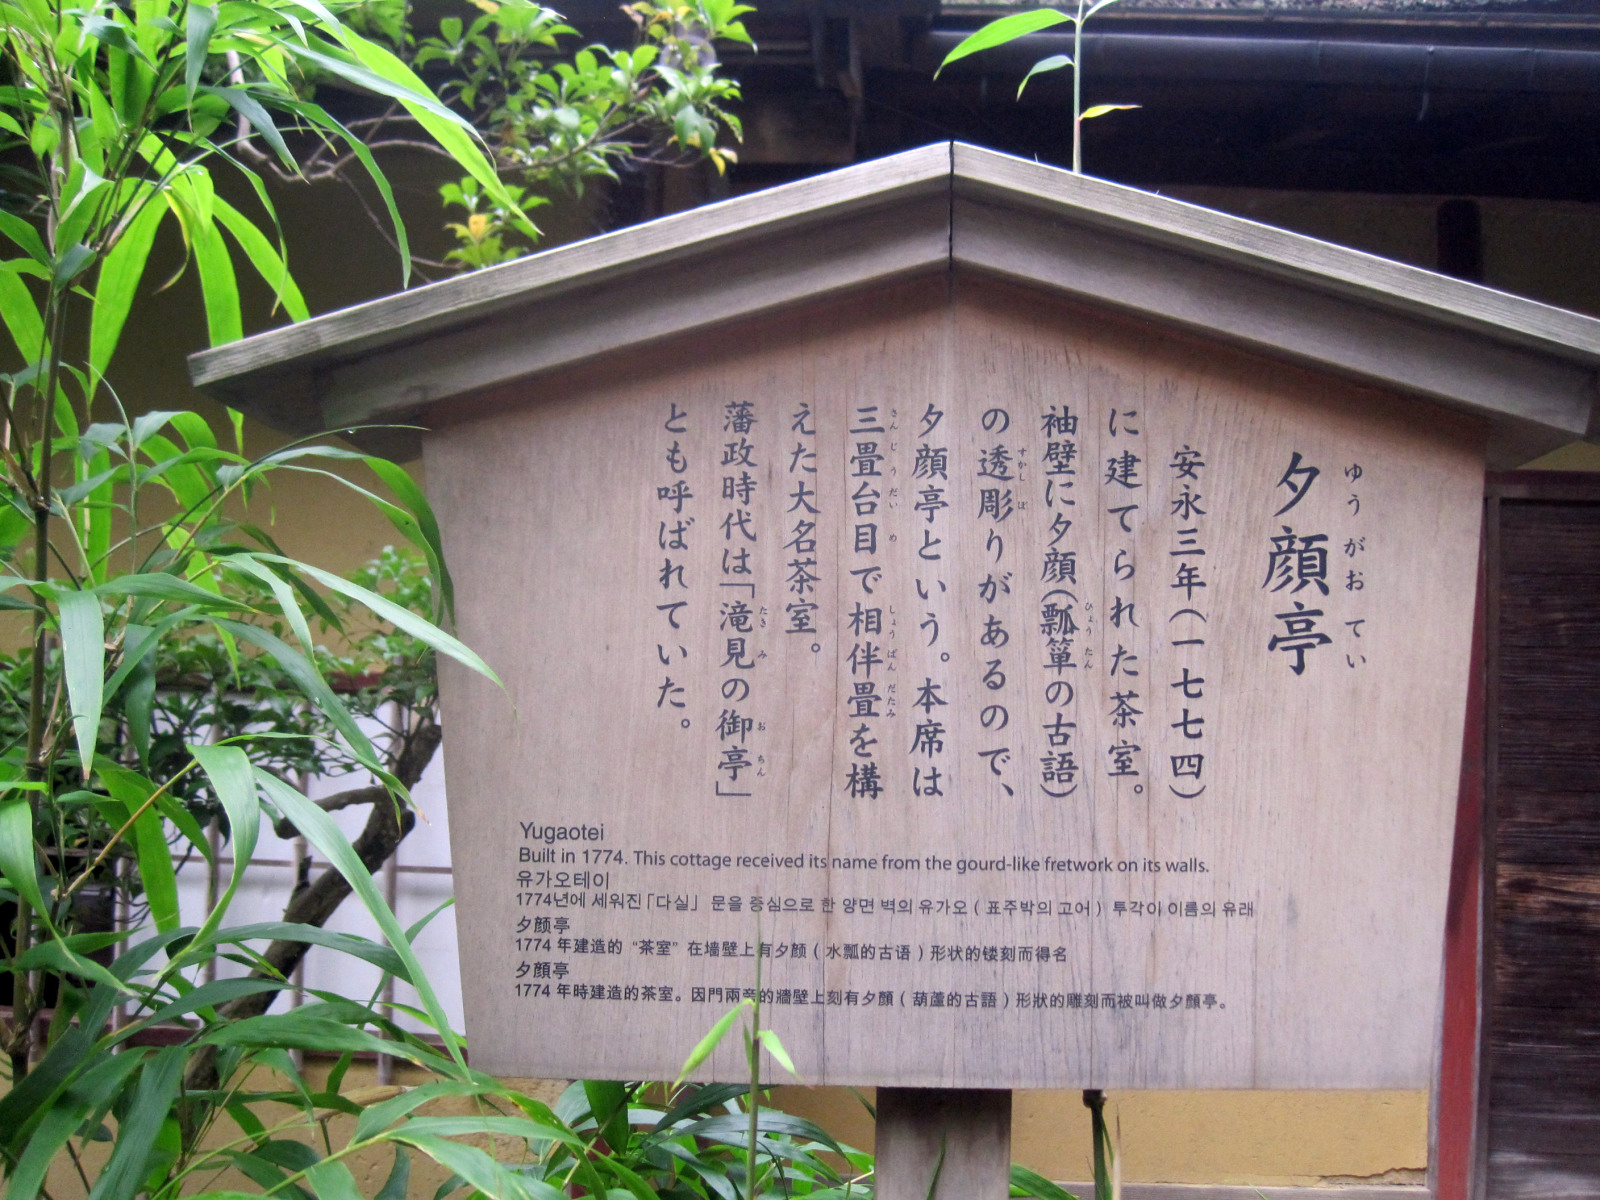 夕顔亭
ゆうがおてい
安永三年(一七七四)
に建てられた茶室。
袖壁に夕顔(瓢箪の古語)
ひょうたん
の透彫りがあるので、
すかしぼ
夕顔亭という。本席は
三畳台目で相伴畳を構
さんじょうだいめ しょうばんだたみ
えた大名茶室。
藩政時代は「滝見の御亭」
たきみ おちん
とも呼ばれていた。
Yugaotei
Built in 1774. This cottage received its name from the gourd-like fretwork on its walls.
유가오테이
1774년에 세워진「다실」 문을 중심으로 한 양면 벽의 유가오 ( 표주박의 고어 ) 투각이 이름의 유래
夕颜亭
1774 年建造的 “茶室” 在墙壁上有夕颜 ( 水瓢的古语 ) 形状的镂刻而得名
夕顏亭
1774 年時建造的茶室。因門兩旁的牆壁上刻有夕顏 ( 葫蘆的古語 ) 形狀的雕刻而被叫做夕顏亭。